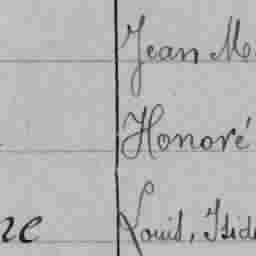 Jean M
Honoré
ne Louis, Isid